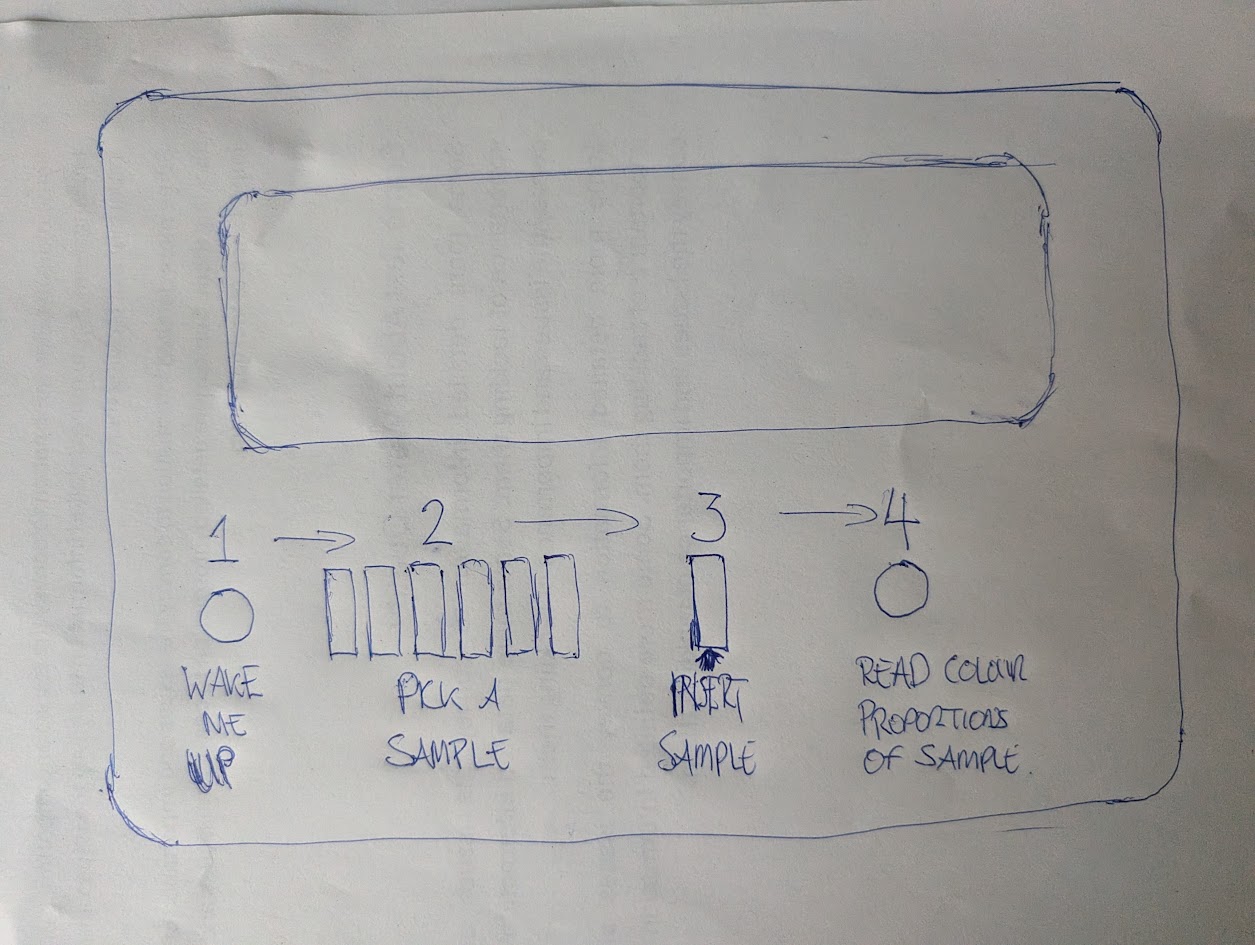 1 → 2 → 3 → 4
WAKE
ME
UP
PICK A
SAMPLE
INSERT
SAMPLE
READ COLOUR
PROPORTIONS
OF SAMPLE.